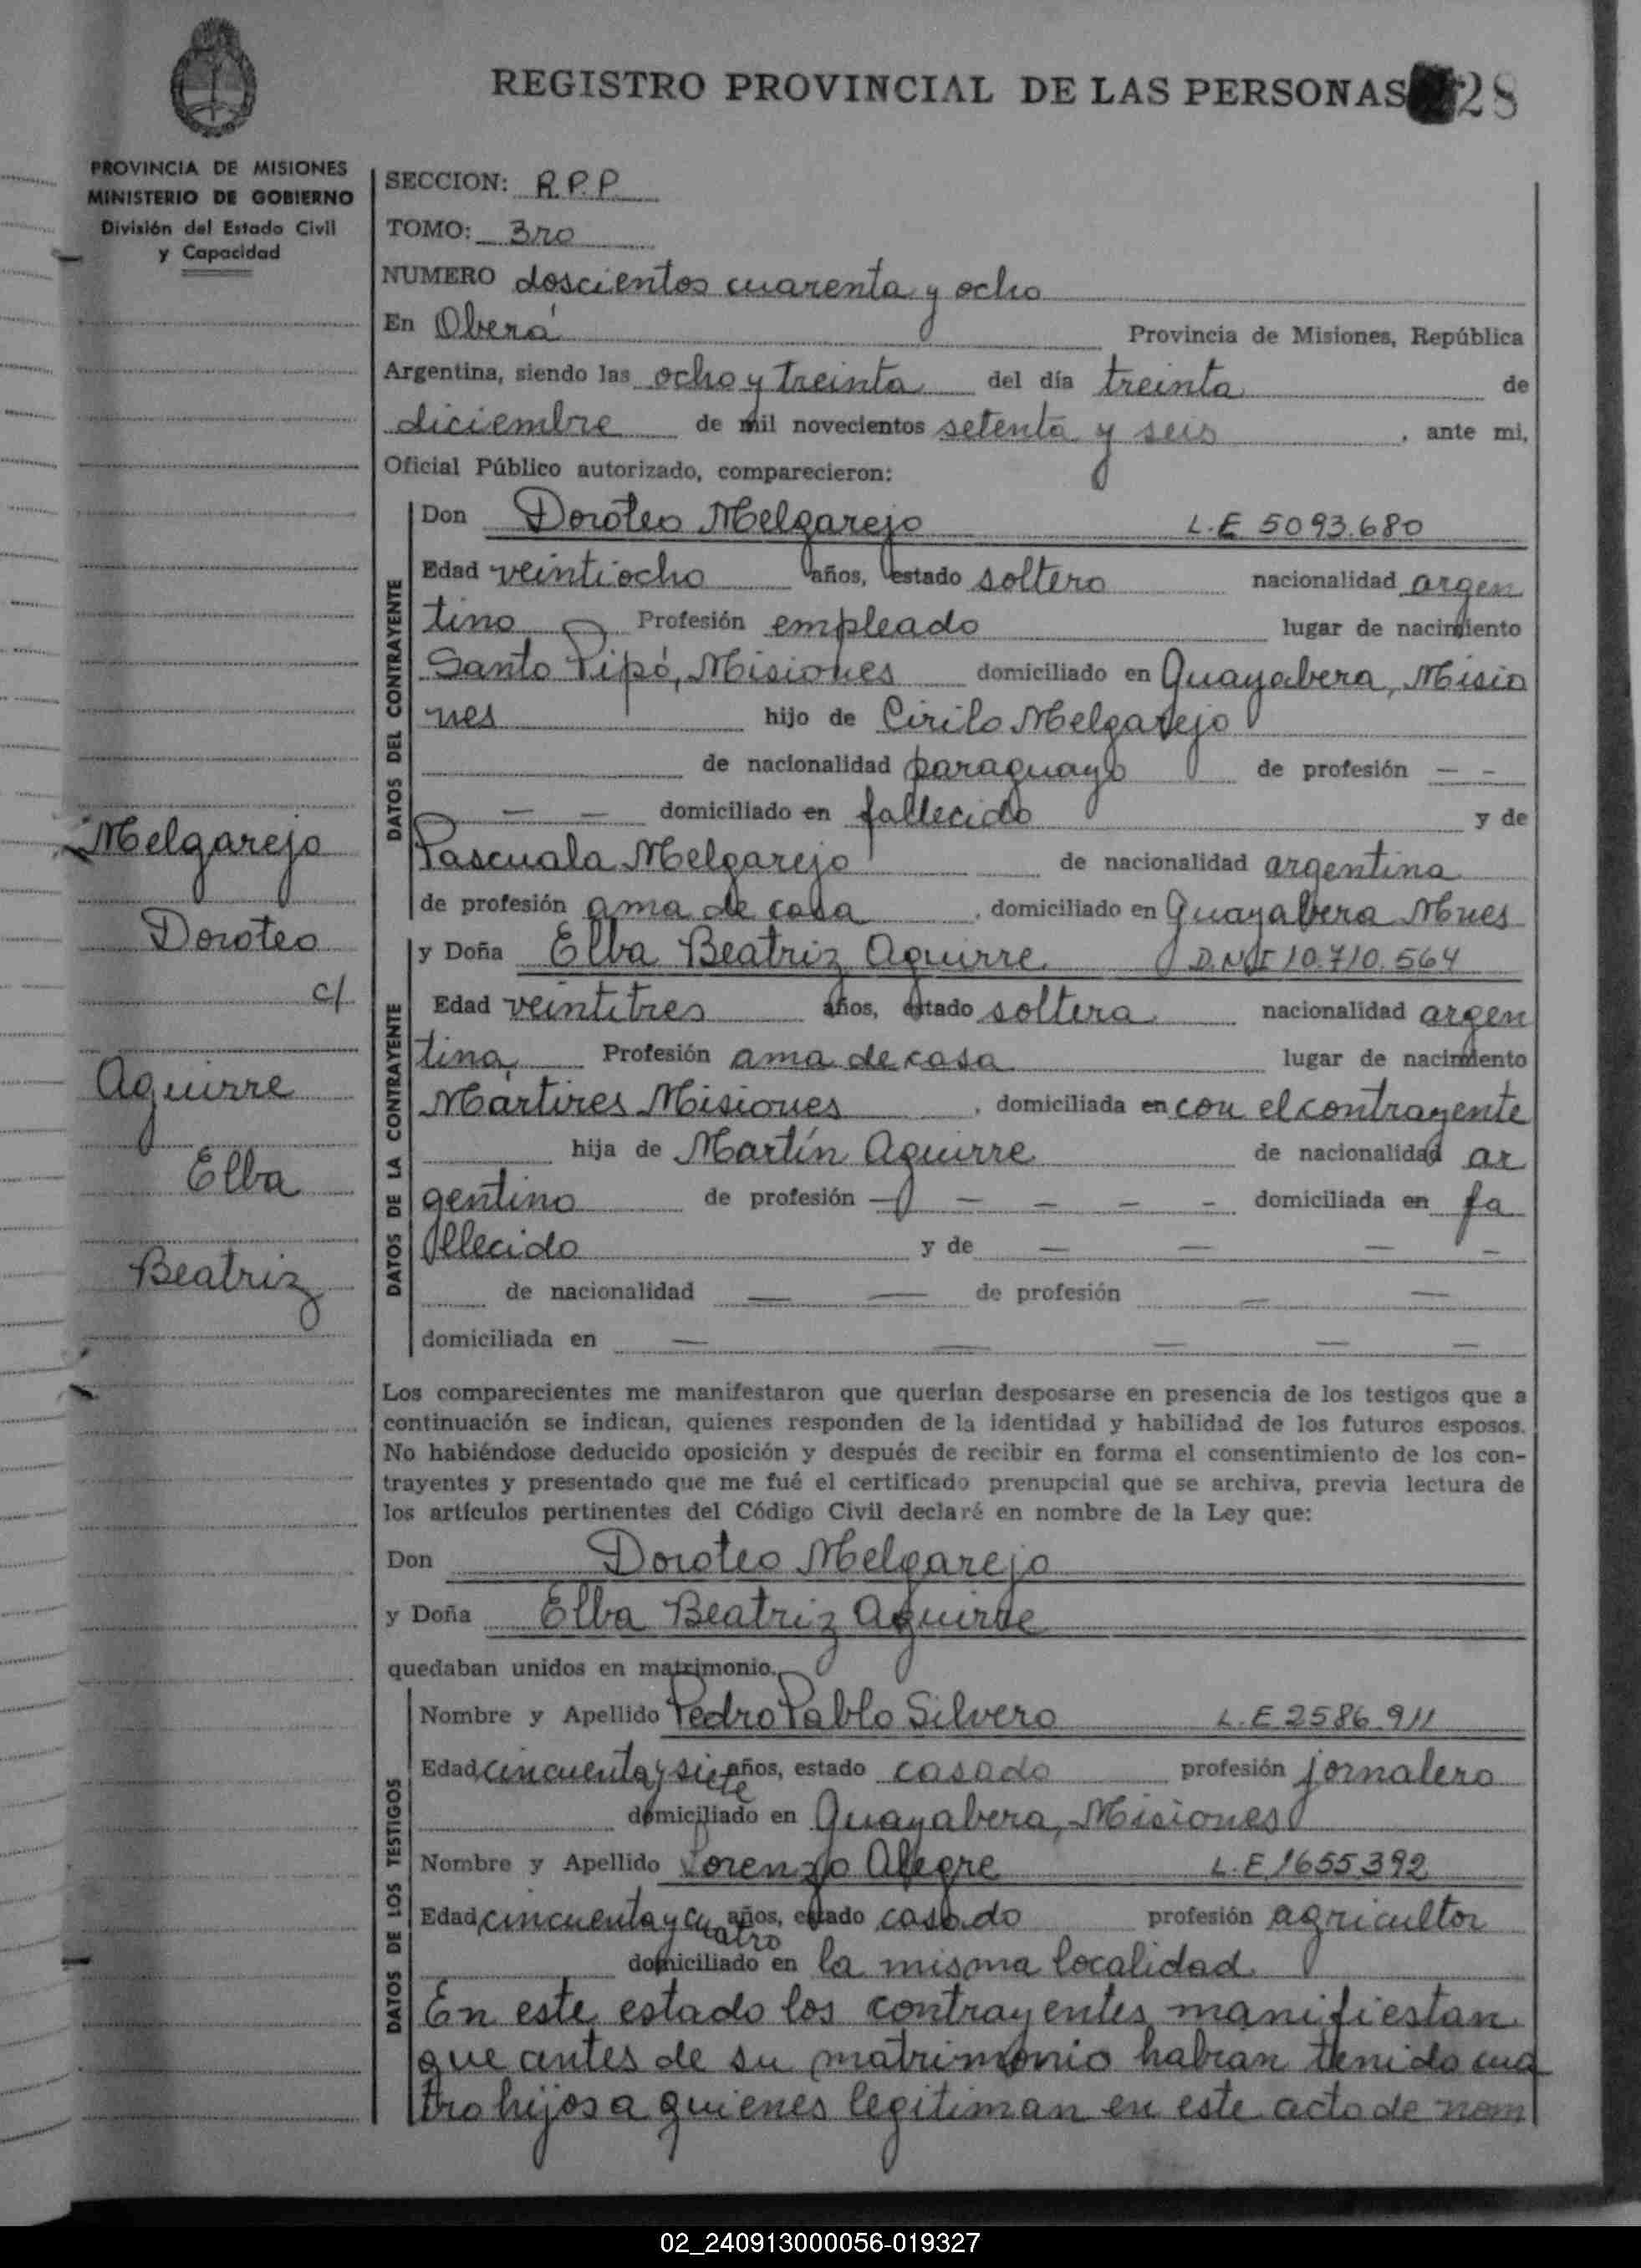 REGISTRO PROVINCIAL DE LAS PERSONAS 28
PROVINCIA DE MISIONES
MINISTERIO DE GOBIERNO
División del Estado Civil
y Capacidad
SECCION: R.P.P.
TOMO: 3ro
NUMERO doscientos cuarenta y ocho
En Oberá Provincia de Misiones, República
Argentina, siendo las ocho y treinta del día treinta de
diciembre de mil novecientos setenta y seis, ante mi,
Oficial Público autorizado, comparecieron:
DATOS DEL CONTRAYENTE
Don Doroteo Melgarejo L.E 5093.680
Edad veintiocho años, estado soltero nacionalidad argen
tino Profesión empleado lugar de nacimiento
Santo Pipó, Misiones domiciliado en Guayabera, Misio
nes hijo de Cirilo Melgarejo
de nacionalidad paraguayo de profesión — —
— — domiciliado en fallecido y de
Pascuala Melgarejo de nacionalidad argentina
de profesión ama de casa, domiciliado en Guayabera Mnes
Melgarejo
Doroteo
c/
Aguirre
Elba
Beatriz
DATOS DE LA CONTRAYENTE
y Doña Elba Beatriz Aguirre D.N.I 10.710.564
Edad veintitres años, estado soltera nacionalidad argen
tina Profesión ama de casa lugar de nacimiento
Mártires Misiones, domiciliada en con el contrayente
hija de Martín Aguirre de nacionalidad ar
gentino de profesión — — — — — domiciliada en fa
llecido y de — — — —
de nacionalidad — — de profesión — —
domiciliada en — — — — —
Los comparecientes me manifestaron que querían desposarse en presencia de los testigos que a
continuación se indican, quienes responden de la identidad y habilidad de los futuros esposos.
No habiéndose deducido oposición y después de recibir en forma el consentimiento de los con-
trayentes y presentado que me fué el certificado prenupcial que se archiva, previa lectura de
los artículos pertinentes del Código Civil declaré en nombre de la Ley que:
Don Doroteo Melgarejo
y Doña Elba Beatriz Aguirre
quedaban unidos en matrimonio.
DATOS DE LOS TESTIGOS
Nombre y Apellido Pedro Pablo Silvero L.E 2586.911
Edad cincuenta y siete años, estado casado profesión jornalero
domiciliado en Guayabera, Misiones
Nombre y Apellido Lorenzo Alegre L.E 1655392
Edad cincuenta y cuatro años, estado casado profesión agricultor
domiciliado en la misma localidad
En este estado los contrayentes manifiestan
que antes de su matrimonio habian tenido cua
tro hijos a quienes legitiman en este acto de nom
02_240913000056-019327